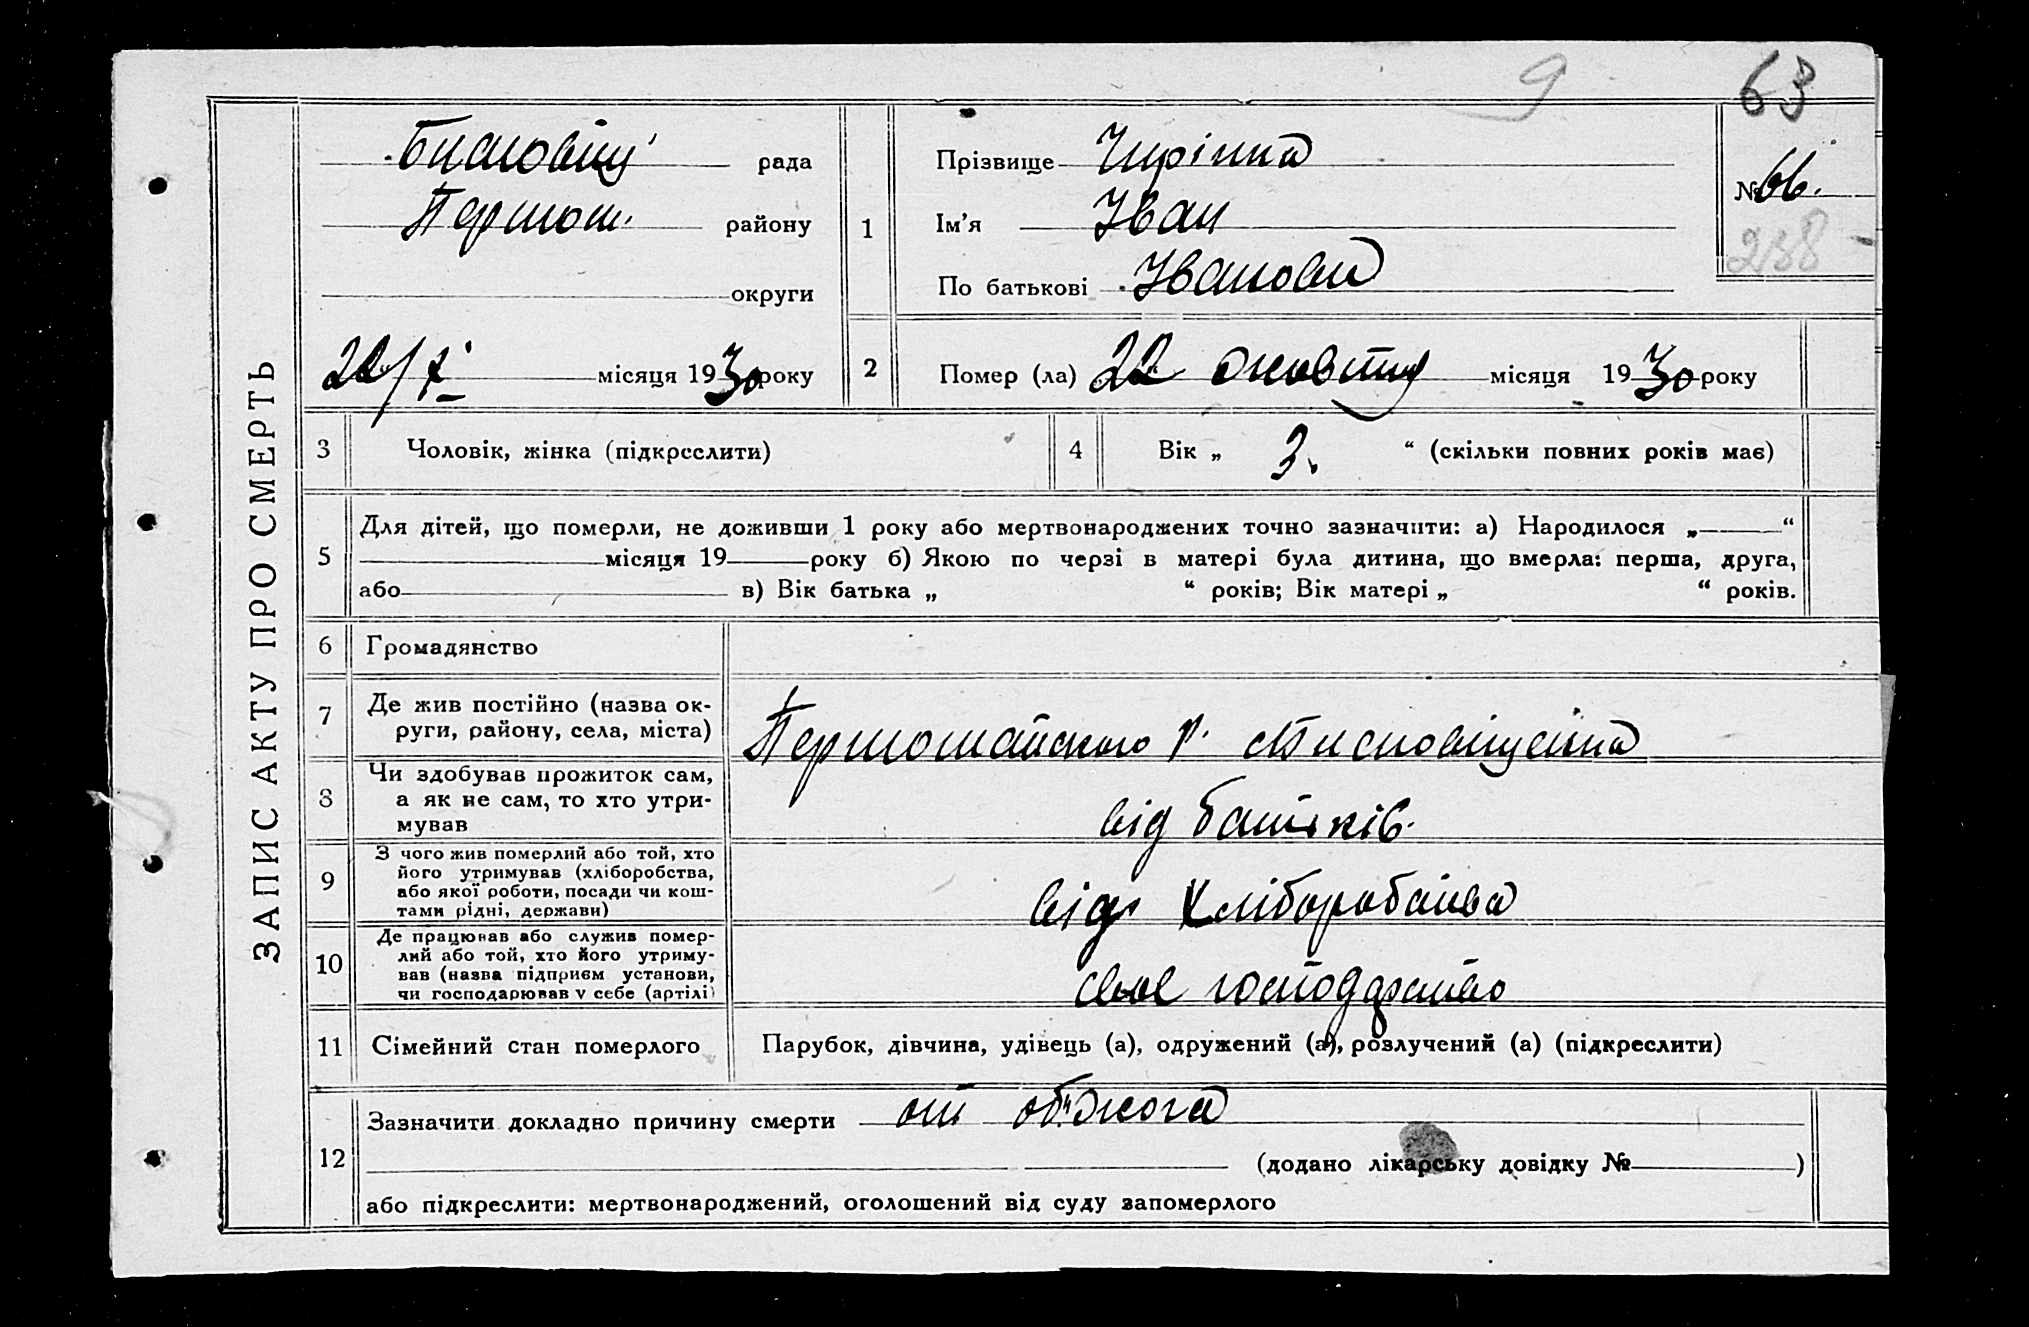 9 63
ЗАПИС АКТУ ПРО СМЕРТЬ
рада
Першом. району
округи
22/X 1930 року
місяця
1
Прізвище
Ім'я Іван
По батькові Іванович
№ 66.
238
2 Помер (ла) 22 жовтня місяця 1930 року
3 Чоловік, жінка (підкреслити)
4 Вік „ 3. “ (скільки повних років має)
5 Для дітей, що померли, не доживши 1 року або мертвонароджених точно зазначити: а) Народилося „ “
місяця 19 року б) Якою по черзі в матері була дитина, що вмерла: перша, друга,
або в) Вік батька „ “ років; Вік матері „ “ років.
6 Громадянство
7 Де жив постійно (назва ок-
руги, району, села, міста)
Першомайского р.
8 Чи здобував прожиток сам,
а як не сам, то хто утри-
мував
від батьків.
9 З чого жив померлий або той, хто
його утримував (хліборобства,
або якої роботи, посади чи кош-
тами рідні, держави)
від хліборобства
10 Де працював або служив помер-
лий або той, хто його утриму-
вав (назва підприєм установи,
чи господарював у себе (артілі)
своє господарство
11 Сімейний стан померлого
Парубок, дівчина, удівець (а), одружений (а), розлучений (а) (підкреслити)
12 Зазначити докладно причину смерти от обжога
(додано лікарську довідку № )
або підкреслити: мертвонароджений, оголошений від суду запомерлого